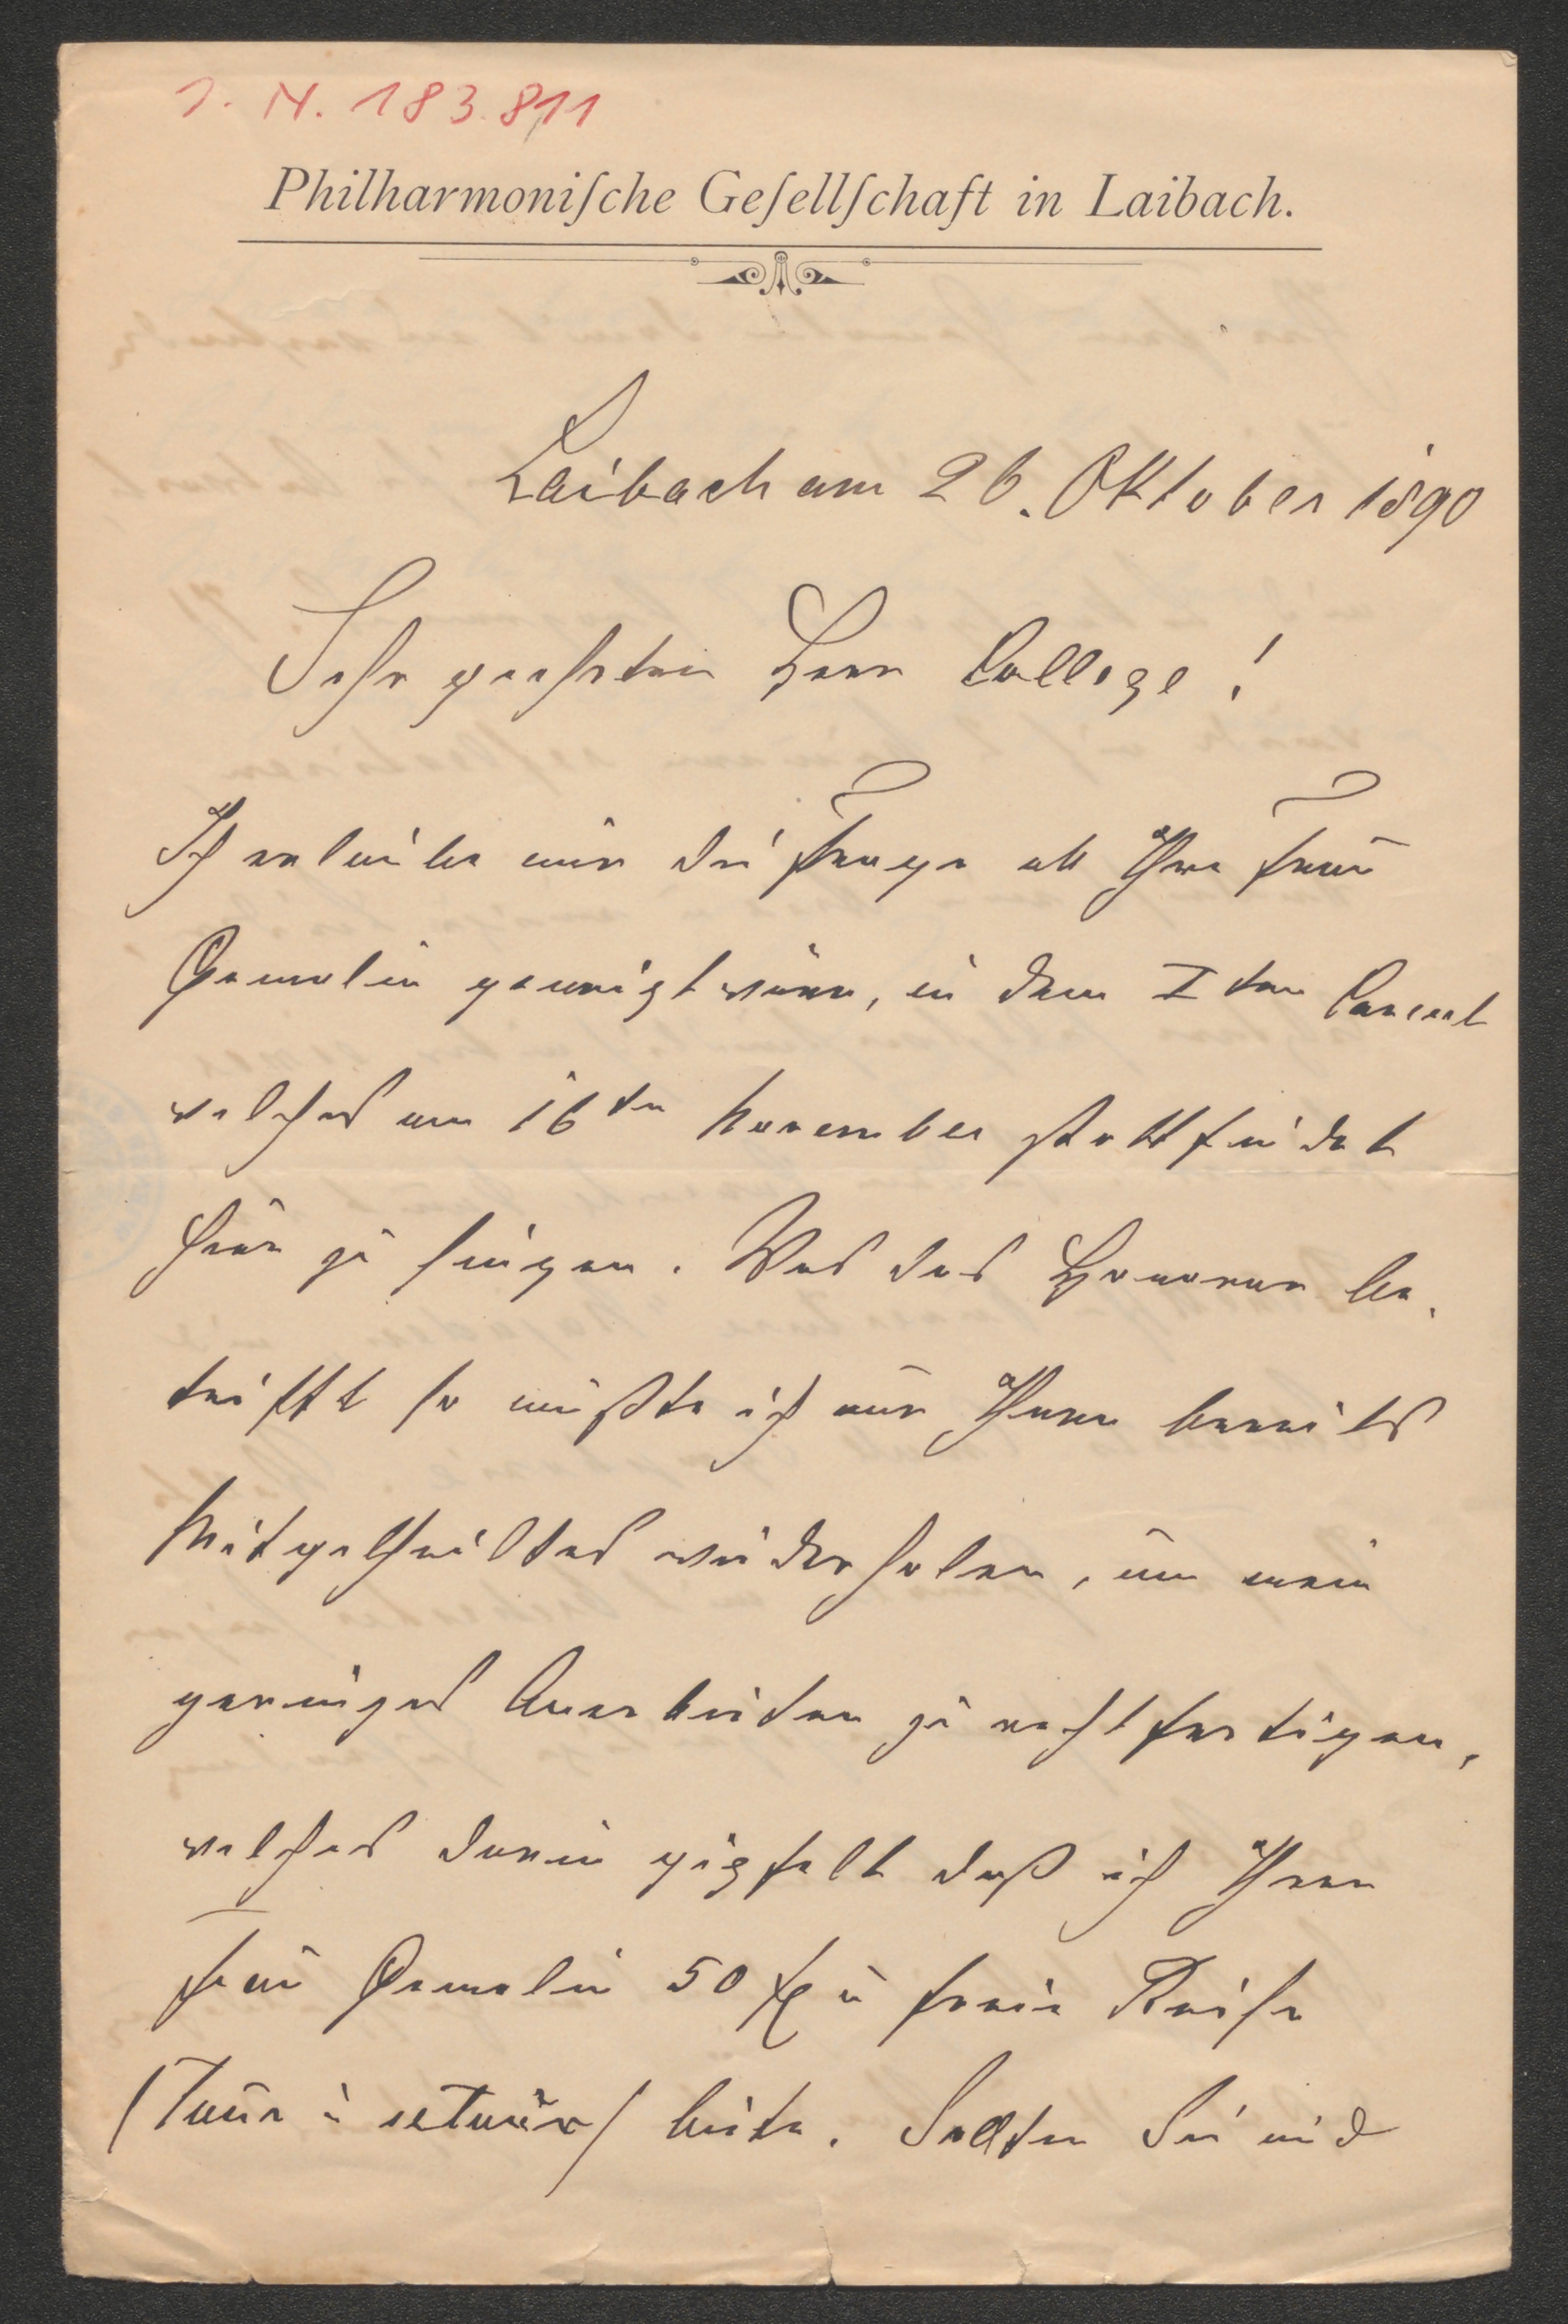 J. N. 183.811
Philharmoniſche Geſellſchaft in Laibach.
Laibach am 26. Oktober 1890
Sehr geehrter Herr College!
Ich erlaube mir die Frage ob Ihre Frau
Gemalin geneigt wäre, in dem I ten Concert
welches am 16ten November stattfindet
hier zu singen. Was das Honorar be-
trifft so müßte ich nur Ihnen bereits
Mitgetheiltes wiederholen, um mein
geringes Anerbieten zu rechtfertigen,
welches darin gipfelt daß ich Ihrer
Frau Gemalin 50 fl u freie Reise
(Tour u retour) biete. Sollten Sie und